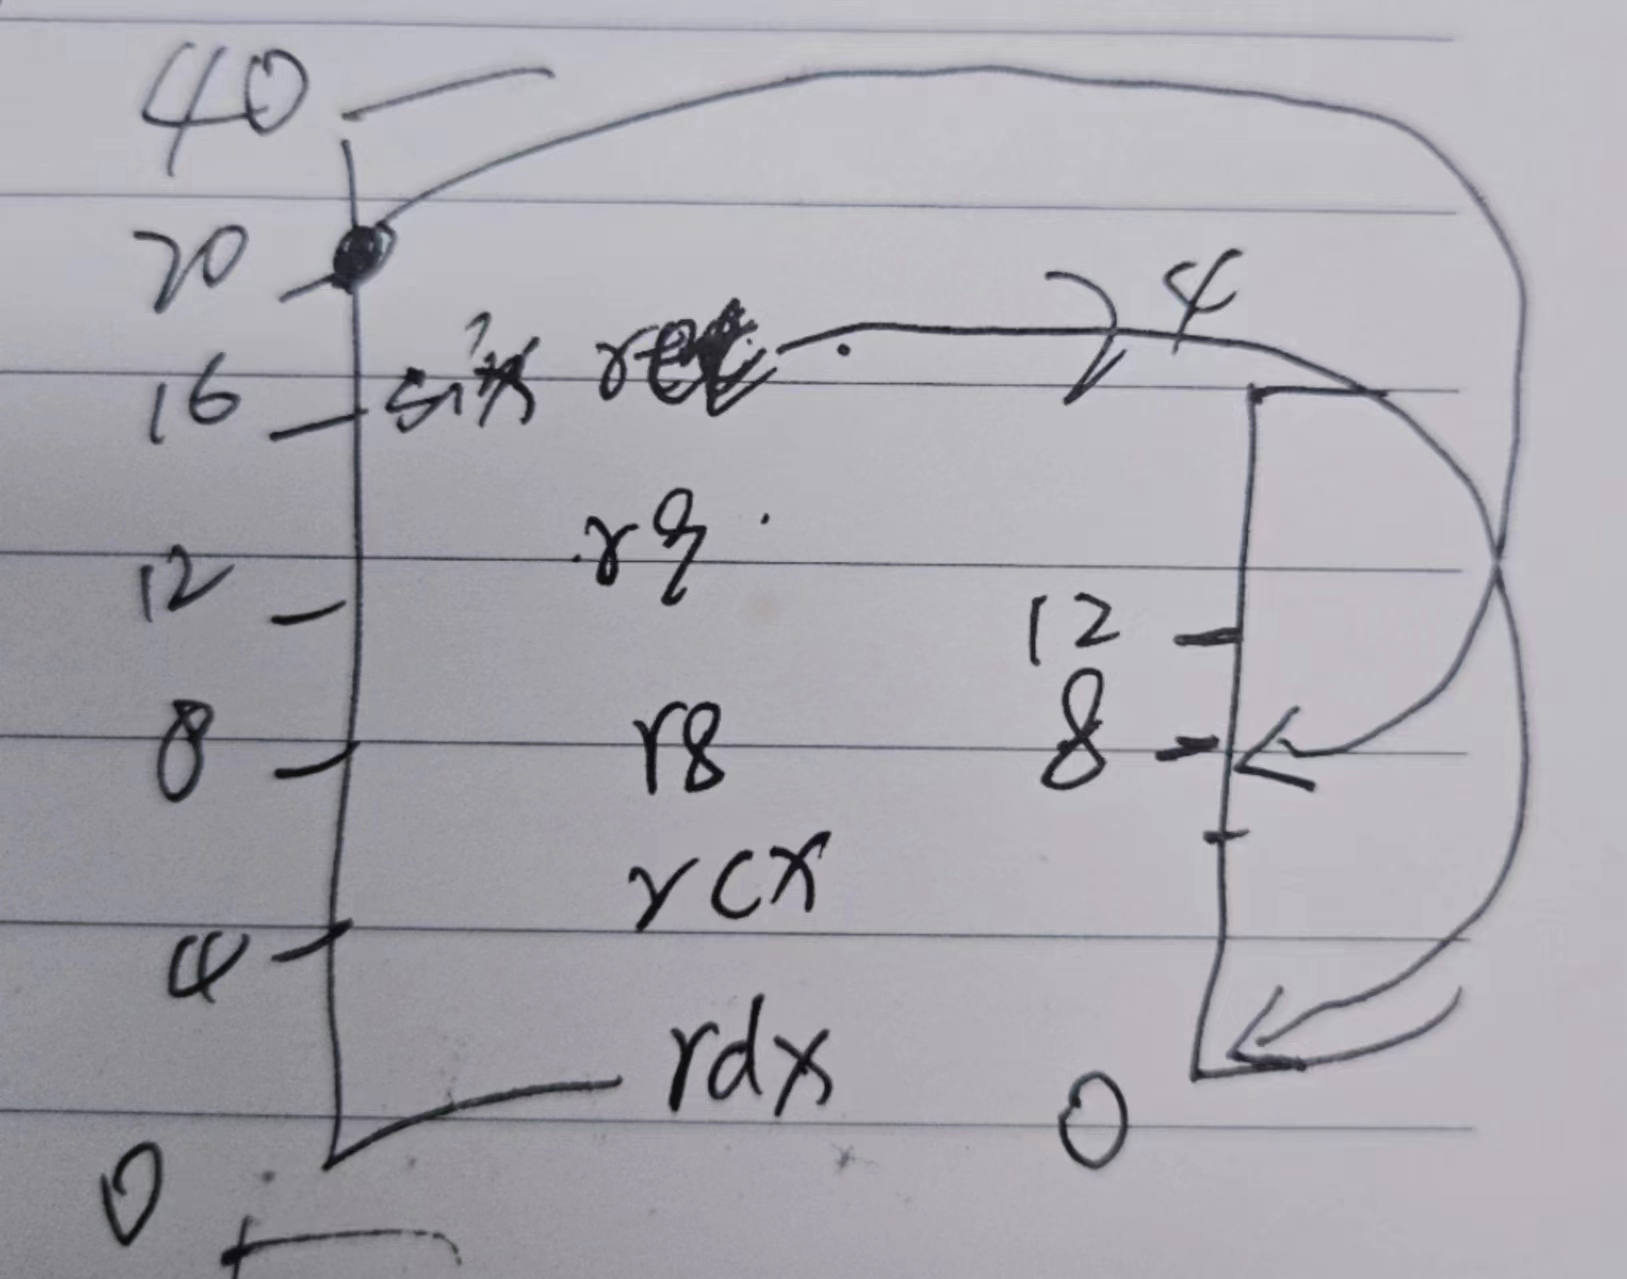 40
20
24
16 six
r9
12
12
8 r8 8
rcx
4
rdx
0 0